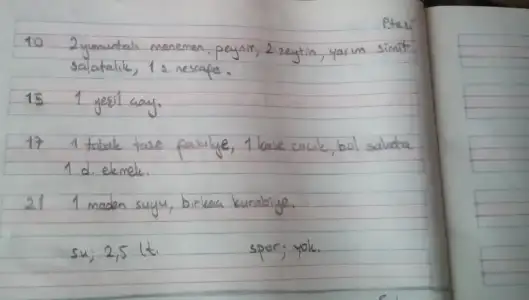 P.tesi
10 2 yumurtalı menemen, peynir, 2 zeytin, yarım simit
salatalık, 1 s nescafe.
15 1 yeşil çay.
17 1 tabak taze fasulye, 1 kase cacık, bol salata
1 d. ekmek.
21 1 maden suyu, birkaç kurabiye.
su; 2,5 lt. spor; yok.